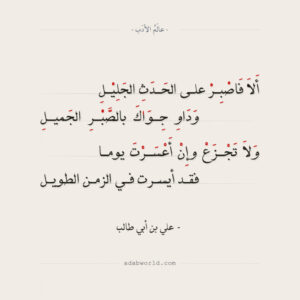 - عالم الأدب -
أَلاَ فَاصْبِرْ على الحَدَثِ الجَلِيْلِ
وَدَاوِ جِوَاكَ بالصَّبْرِ الجَميلِ
وَلاَ تَجْزَعْ وإِنْ أَعْسَرْتَ يوما
فقد أيسرت في الزمن الطويل
- علي بن أبي طالب
adabworld.com